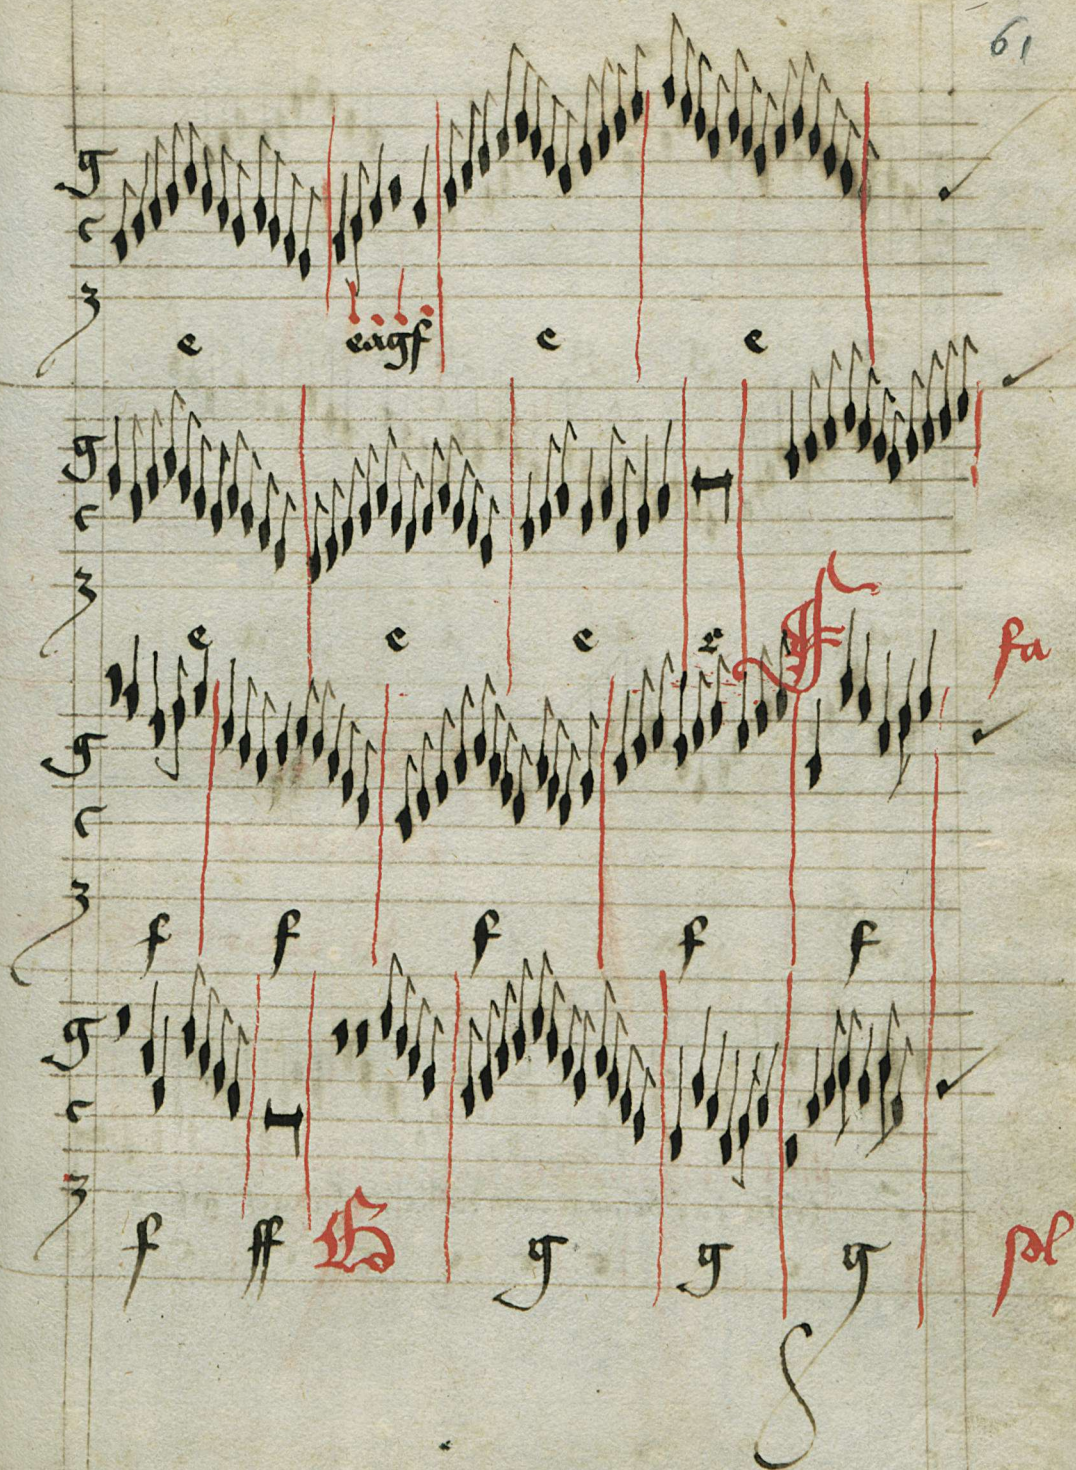 61
g
c
e eagf e e
g
c
e e e e F fa
g
c
f f f f f
g
c
f ff G g g g sol